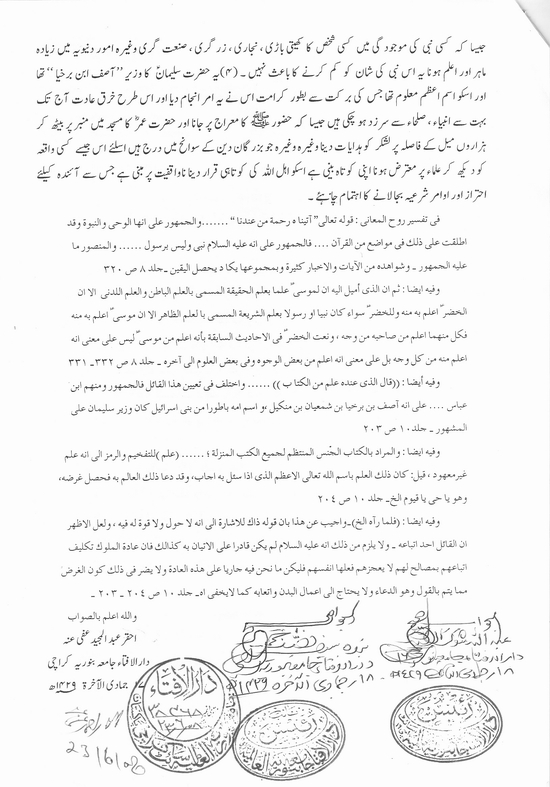 جیسا کہ کسی نبی کی موجودگی میں کسی شخص کا کھیتی باڑی، نجاری، زرگری، صنعت گری وغیرہ امور دنیویہ میں زیادہ
ماہر اور اعلم ہونا یہ اس نبی کی شان کو کم کرنے کا باعث نہیں۔ (۴) یہ حضرت سلیمانؑ کا وزیر ”آصف ابن برخیا“ تھا
اور اسکو اسم اعظم معلوم تھا جس کی برکت سے بطور کرامت اس نے یہ امر انجام دیا اور اس طرح خرق عادت آج تک
بہت سے انبیاء، صلحاء سے سرزد ہو چکی ہیں جیسا کہ حضور ﷺ کا معراج پر جانا اور حضرت عمرؓ کا مسجد میں منبر پر بیٹھ کر
ہزاروں میل کے فاصلہ پر لشکر کو ہدایات دینا وغیرہ وغیرہ جو بزرگان دین کے سوانح میں درج ہیں اسلئے اس جیسے کسی واقعہ
کو دیکھ کر علماء پر معترض ہونا اپنی کوتاہ بینی ہے اسکو اہل اللہ کی کوتاہی قرار دینا ناواقفیت پر مبنی ہے جس سے آئندہ کیلئے
احتراز اور اوامر شرعیہ بجالانے کا اہتمام چاہیئے۔
فی تفسیر روح المعانی : قوله تعالی” آتیناه رحمة من عندنا “ .......والجمهور علی انها الوحی والنبوة وقد
اطلقت علی ذلك فی مواضع من القرآن .... فالجمهور علی انه علیه السلام نبی ولیس برسول ...... والمنصور ما
علیه الجمهور ۔ وشواهده من الآیات والاخبار کثیرة وبمجموعها یکاد یحصل الیقین ۔جلد ۸ ص ۳۲۰
وفیه ایضا : ثم ان الذی أمیل الیه ان لموسیٰؑ علما بعلم الحقیقة المسمی بالعلم الباطن والعلم اللدنی الا ان
الخضرؑ اعلم به منه وللخضرؑ سواء کان نبیا او رسولا بعلم الشریعة المسمی بالعلم الظاهر الا ان موسیٰؑ اعلم به منه
فکل منهما اعلم من صاحبه من وجه ، ونعت الخضرؑ فی الاحادیث السابقة بأنه اعلم من موسیٰؑ لیس علی معنی انه
اعلم منه من کل وجه بل علی معنی انه اعلم من بعض الوجوه وفی بعض العلوم الی آخره ۔ جلد ۸ ص ۳۳۲۔ ۳۳۱
وفیه أیضا : ((قال الذی عنده علم من الکتاب )) ...... واختلف فی تعیین هذا القائل فالجمهور ومنهم ابن
عباس .... علی انه آصف بن برخیا بن شمعیان بن منکیل ،و اسم امه باطورا من بنی اسرائیل کان وزیر سلیمان علی
المشهور ۔ جلد ۱۰ ص ۲۰۳
وفیه ایضا : والمراد بالکتاب الجنس المنتظم لجمیع الکتب المنزلة ؛ ...... (علم )للتفخیم والرمز الی انه علم
غیرمعهود ، قیل: کان ذلك العلم باسم الله تعالی الاعظم الذی اذا سئل به اجاب، وقد دعا ذلك العالم به فحصل غرضه،
وهو یا حی یا قیوم الخ۔ جلد ۱۰ ص ۲۰٤
وفیه ایضا : (فلما رآه الخ)۔واجیب عن هذا بان قوله ذاك للاشارة الی انه لا حول ولا قوة له فیه ، ولعل الاظهر
ان القائل احد اتباعه ۔ ولا یلزم من ذلك انه علیه السلام لم یکن قادرا علی الاتیان به کذالك فان عادة الملوك تکلیف
اتباعهم بمصالح لهم لا یعجزهم فعلها انفسهم فلیکن ما نحن فیه جاریا علی هذه العادة ولا یضر فی ذلك کون الغرض
مما یتم بالقول وهو الدعاء ولا یحتاج الی اعمال البدن واتعابه کما لایخفی اه۔ جلد ۱۰ ص ۲۰٤ ۔ ۲۰۳ ۔
والله اعلم بالصواب
احقر عبد المجید عفی عنہ
دار الافتاء جامعہ بنوریہ کراچی
جمادی الآخرة ۱٤۲۹ھ
دار الافتاء
23/6/08